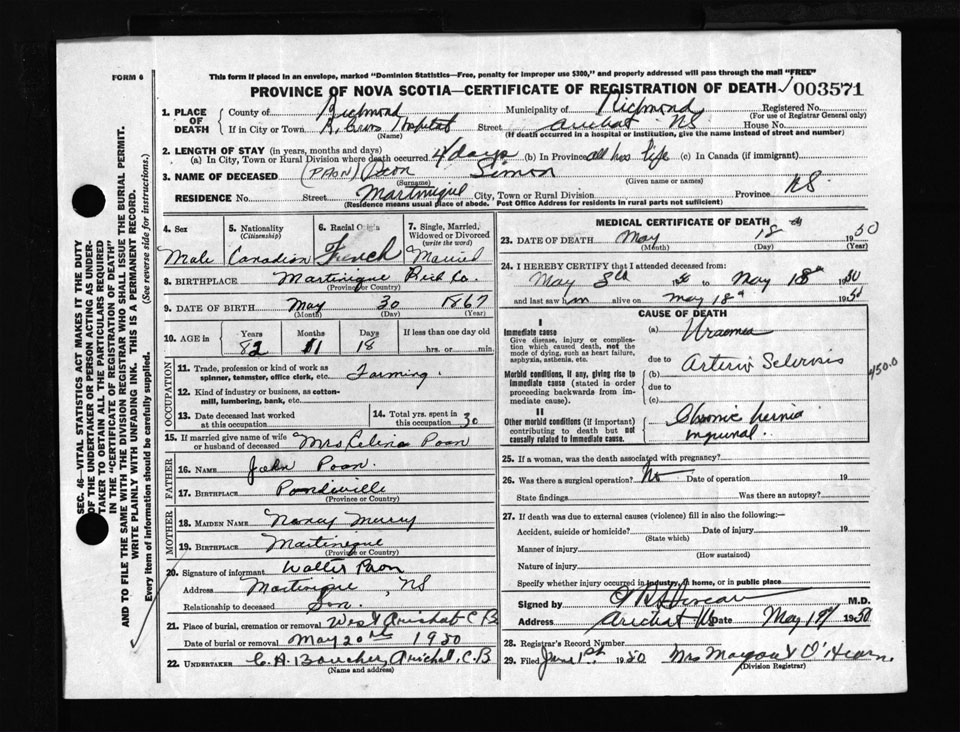 FORM 6
This form if placed in an envelope, marked "Dominion Statistics—Free, penalty for improper use $300," and properly addressed will pass through the mail "FREE"
PROVINCE OF NOVA SCOTIA—CERTIFICATE OF REGISTRATION OF DEATH 003571
1. PLACE OF DEATH
County of Richmond Municipality of Richmond Registered No.
(For use of Registrar General only)
If in City or Town R. Cross Hospital Street Arichat NS House No.
(Name) (If death occurred in a hospital or institution, give the name instead of street and number)
2. LENGTH OF STAY (in years, months and days)
(a) In City, Town or Rural Division where death occurred 4 days (b) In Province all his life (c) In Canada (if immigrant)
3. NAME OF DECEASED (PAON) Poon Simon
(Surname) (Given name or names)
RESIDENCE No. Street Martinique City, Town or Rural Division Province NS
(Residence means usual place of abode. Post Office Address for residents in rural parts not sufficient)
4. Sex 5. Nationality (Citizenship) 6. Racial Origin 7. Single, Married, Widowed or Divorced (write the word)
Male Canadian French Married
8. BIRTHPLACE Martinique Rich Co.
(Province or Country)
9. DATE OF BIRTH May 30 1867
(Month) (Day) (Year)
10. AGE in Years Months Days If less than one day old
82 11 18 hrs. or min.
OCCUPATION
11. Trade, profession or kind of work as spinner, teamster, office clerk, etc. Farming.
12. Kind of industry or business, as cotton-mill, lumbering, bank, etc.
13. Date deceased last worked at this occupation 14. Total yrs. spent in this occupation 30
15. If married give name of wife or husband of deceased Mrs Celina Poon
FATHER
16. NAME John Poon.
17. BIRTHPLACE Pondville
(Province or Country)
MOTHER
18. MAIDEN NAME Nancy Murry
19. BIRTHPLACE Martinique
(Province or Country)
20. Signature of informant Walter Paon
Address Martinique, NS
Relationship to deceased Son.
21. Place of burial, cremation or removal West Arichat C.B
Date of burial or removal May 20 1950
22. UNDERTAKER C. A. Boucher, Arichat, C.B
(Name and address)
MEDICAL CERTIFICATE OF DEATH
23. DATE OF DEATH May 18 1950
(Month) (Day) (Year)
24. I HEREBY CERTIFY that I attended deceased from:
May 8th 1950 to May 18th 1950
and last saw him alive on May 18th 1950
CAUSE OF DEATH
I
Immediate cause
Give disease, injury or complication which caused death, not the mode of dying, such as heart failure, asphyxia, asthenia, etc.
(a) Uraemia
due to
Morbid conditions, if any, giving rise to immediate cause (stated in order proceeding backwards from immediate cause).
(b) Arterio Sclerosis
due to
(c)
450.0
II
Other morbid conditions (if important) contributing to death but not causally related to immediate cause.
Chronic hernia
inguinal.
25. If a woman, was the death associated with pregnancy?
26. Was there a surgical operation? No Date of operation 19
State findings Was there an autopsy?
27. If death was due to external causes (violence) fill in also the following:—
Accident, suicide or homicide? Date of injury 19
(State which)
Manner of injury
(How sustained)
Nature of injury
Specify whether injury occurred in industry, in home, or in public place
Signed by M.D.
Address Arichat NS Date May 19 1950
28. Registrar's Record Number
29. Filed June 1st 1950 Mrs Margaret O'Hearn.
(Division Registrar)
SEC. 46—VITAL STATISTICS ACT MAKES IT THE DUTY
OF THE UNDERTAKER OR PERSON ACTING AS UNDER-
TAKER TO OBTAIN ALL THE PARTICULARS REQUIRED
IN THE "CERTIFICATE OF REGISTRATION OF DEATH"
AND TO FILE THE SAME WITH THE DIVISION REGISTRAR WHO SHALL ISSUE THE BURIAL PERMIT.
WRITE PLAINLY WITH UNFADING INK. THIS IS A PERMANENT RECORD.
Every item of information should be carefully supplied. (See reverse side for instructions.)